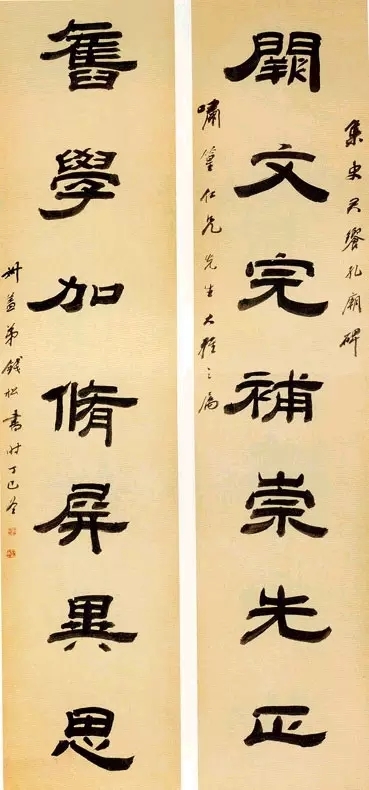 集史君饗孔廟碑
闕文完補崇先正
嘯篁仁兄先生大雅之屬
舊學加脩屏異思
叔盖弟錢松書時丁巳